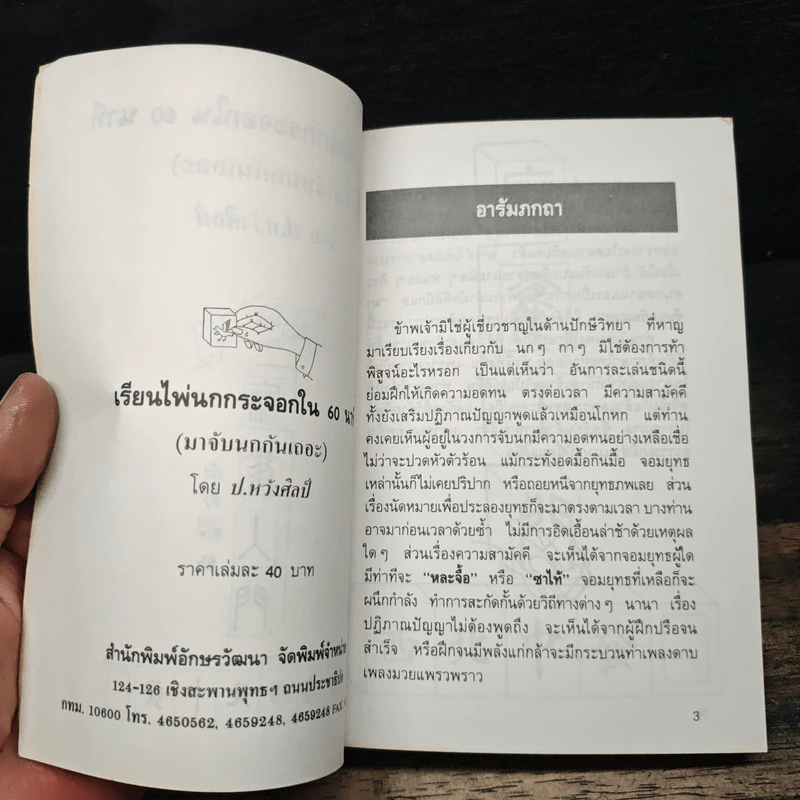 เรียนไพ่นกกระจอกใน 60 นาที
(มาจับนกกันเถอะ)
โดย ป.หวังศิลป์
ราคาเล่มละ 40 บาท
สำนักพิมพ์อักษรวัฒนา จัดพิมพ์จำหน่าย
124-126 เชิงสะพานพุทธฯ ถนนประชาธิปก
กทม. 10600 โทร. 4650562, 4659248, 4659248 FAX
อารัมภกถา
ข้าพเจ้ามิใช่ผู้เชี่ยวชาญในด้านปักษีวิทยา ที่หาญ
มาเรียบเรียงเรื่องเกี่ยวกับ นกๆ กาๆ มิใช่ต้องการท้า
พิสูจน์อะไรหรอก เป็นแต่เห็นว่า อันการละเล่นชนิดนี้
ย่อมฝึกให้เกิดความอดทน ตรงต่อเวลา มีความสามัคคี
ทั้งยังเสริมปฏิภาณปัญญาพูดแล้วเหมือนโกหก แต่ท่าน
คงเคยเห็นผู้อยู่ในวงการจับนกมีความอดทนอย่างเหลือเชื่อ
ไม่ว่าจะปวดหัวตัวร้อน แม้กระทั่งอดมื้อกินมื้อ จอมยุทธ
เหล่านั้นก็ไม่เคยปริปาก หรือถอยหนีจากยุทธภพเลย ส่วน
เรื่องนัดหมายเพื่อประลองยุทธก็จะมาตรงตามเวลา บางท่าน
อาจมาก่อนเวลาด้วยซ้ำ ไม่มีการอิดเอื้อนล่าช้าด้วยเหตุผล
ใดๆ ส่วนเรื่องความสามัคคี จะเห็นได้จากจอมยุทธผู้ใด
มีท่าทีจะ “หละจื้อ” หรือ “ซาไท้” จอมยุทธที่เหลือก็จะ
ผนึกกำลัง ทำการสะกัดกั้นด้วยวิถีทางต่างๆ นานา เรื่อง
ปฏิภาณปัญญาไม่ต้องพูดถึง จะเห็นได้จากผู้ฝึกปรือจน
สำเร็จ หรือฝึกจนมีพลังแก่กล้าจะมีกระบวนท่าเพลงดาบ
เพลงมวยแพรวพราว
3